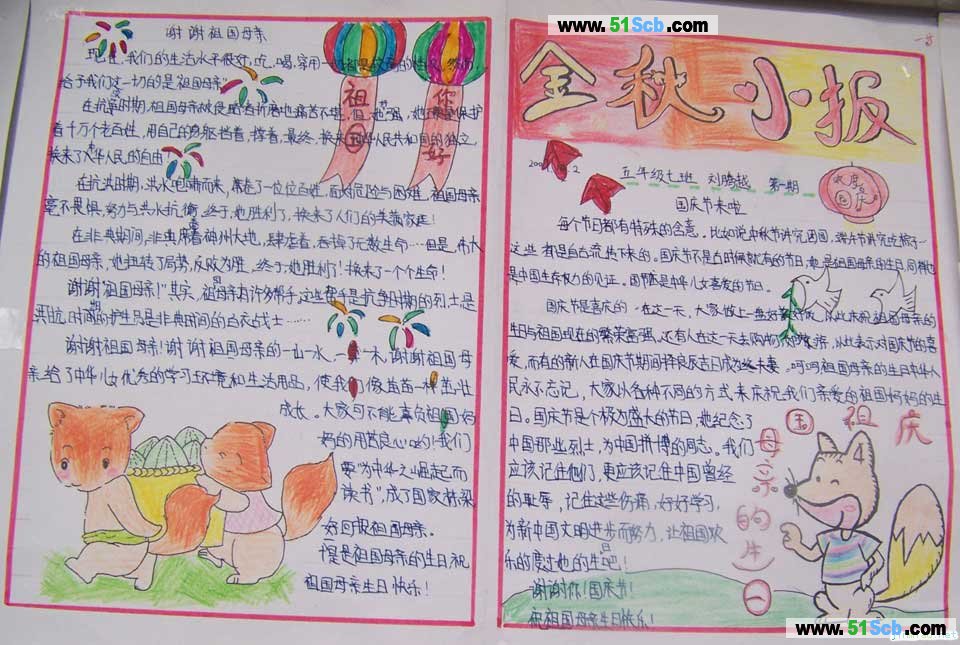 谢谢祖国母亲
现在,我们的生活水平很好,吃、喝、穿用一
给予我们这一切的是"祖国母亲"
在抗
着千万个老百姓,用自己的身躯挡着,撑着,最终,换来了中华人民共和国的独立,
换来了人民的自由!
在抗洪时期,洪水咆哮而来,席卷了一位位百姓,面对危险与困难,祖国母亲
毫不畏惧,努力与洪水抗衡,终于,她胜利了,换来了人们的美满家庭!
在非典期间,非典席卷神州大地,肆虐着,吞掉了无数生命……但是,伟大
的祖国母亲,她扭转了局势,反败为胜,终于,她胜利了!换来了一个个生命!
谢谢"祖国母亲!"其实,祖国母亲有许多帮手,这些帮手是抗争时期的烈士是
非典时间的白衣战士……
谢谢祖国母亲!谢谢祖国母亲的一山一水,一草一木,谢谢祖国母
亲给了中华儿女优秀的学习环境和生活用品,使我们像苗苗一样茁壮
成长。大家可不能辜负祖国妈
妈的用苦良心呦!我们
要"为中华之崛起而
读书",成了国家栋梁
好回报祖国母亲。
祖国母亲的生日,祝
祖国母亲生日快乐!
祖国
你好
www.51Scb.com
金秋小报
五年级七班 刘腾越 第一期
欢度国庆
国庆节来啦
每个节日都有特殊的含意。比如说中秋节讲究团圆,端午节讲究吃粽子
这些都是自古流传下来的。国庆节不是古时候就有的节日,她是祖国母亲的生日,同样也
是中国生存权力的见证。国庆是中华儿女喜爱的节日。
国庆节是喜庆的。在这一天,大家做上一
生日与祖国现在的繁荣富强。还有人在这一天去购物
爱,而有的新人在国庆节期间择良辰吉日成为结夫妻。呵呵祖国母亲的生日中华人
民永不忘记,大家以各种不同的方式来庆祝我们亲爱的祖国妈妈的生
日。国庆节是个极为盛大的节日,她纪念了
中国那些烈士,为中国拼搏的同志。我们
应该记住他们,更应该记住中国曾经
的耻辱,记住这些伤痛,好好学习,
为新中国文明进步而努力,让祖国欢
乐的度过她的生日吧!
谢谢你!国庆节!
祝祖国母亲生日快乐!
庆祖国母亲的生日
www.51Scb.com